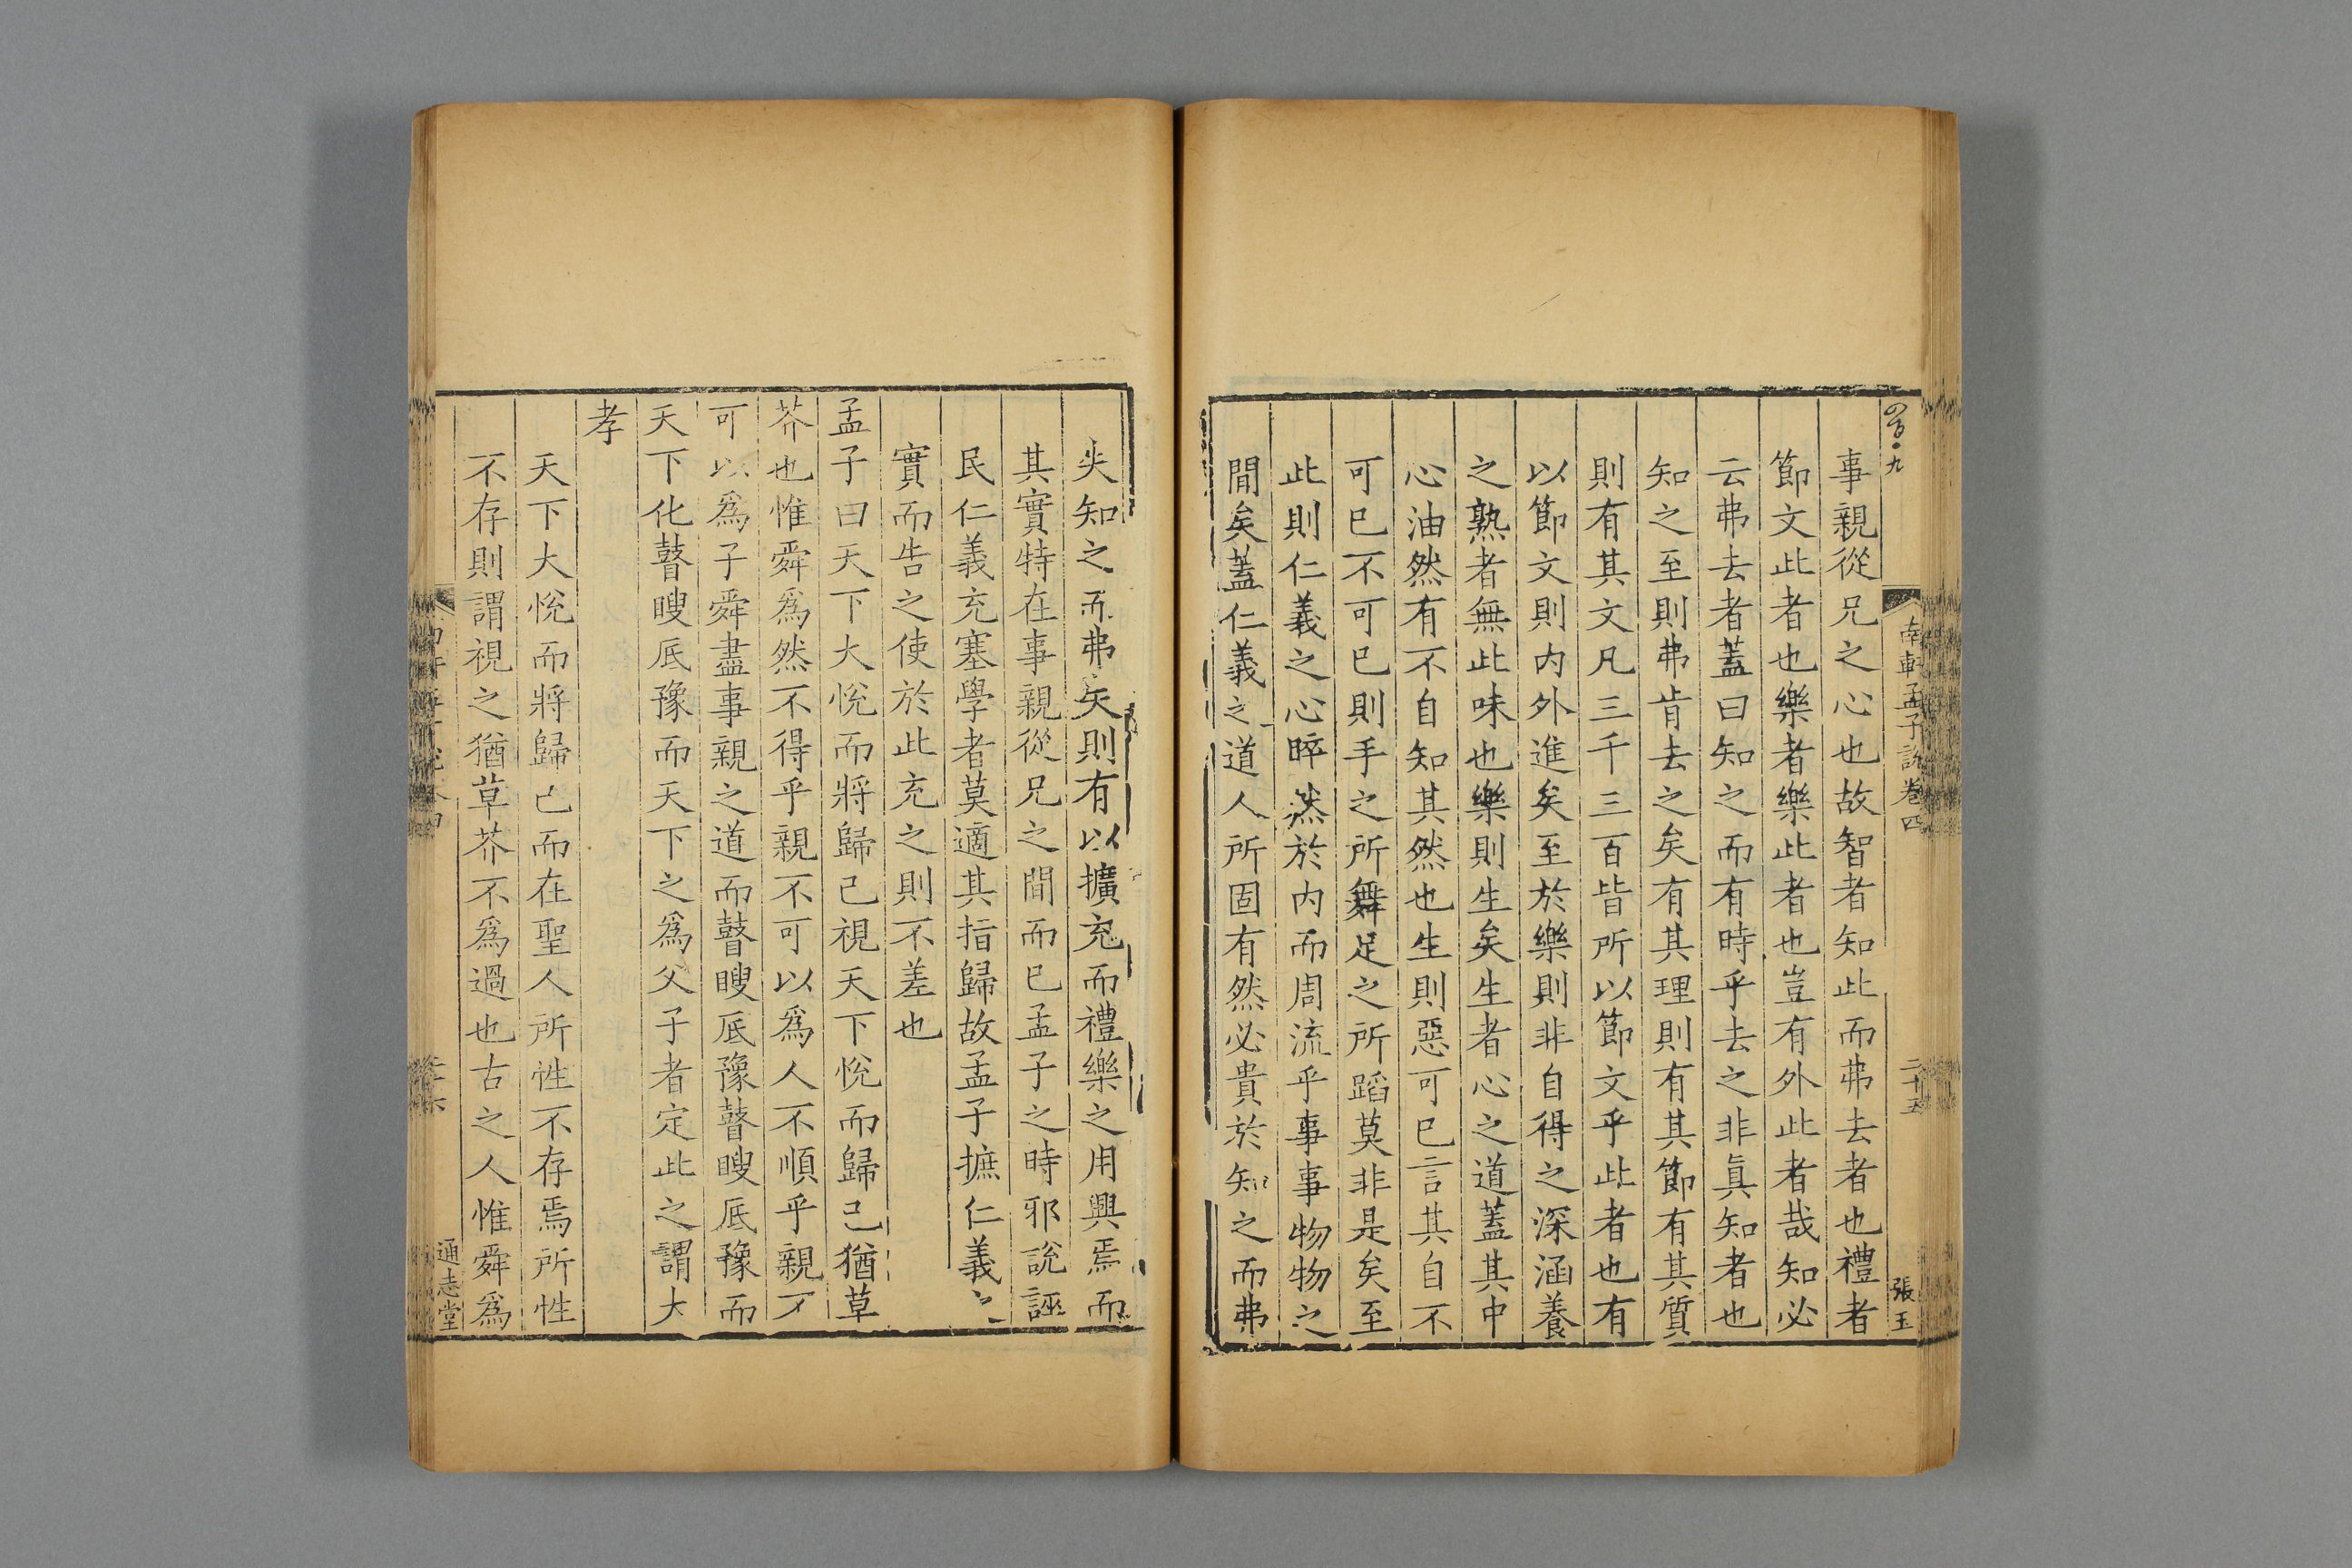 南軒孟子說卷四
二十五
張玉
事親從兄之心也故智者知此而弗去者也禮者
節文此者也樂者樂此者也豈有外此者哉知必
云弗去者蓋曰知之而有時乎去之非眞知者也
知之至則弗肯去之矣有其理則有其節有其質
則有其文凡三千三百皆所以節文乎此者也有
以節文則内外進矣至於樂則非自得之深涵養
之熟者無此味也樂則生矣生者心之道蓋其中
心油然有不自知其然也生則惡可已言其自不
可已不可已則手之所舞足之所蹈莫非是矣至
此則仁義之心睟然於内而周流乎事事物物之
間矣蓋仁義之道人所固有然必貴於知之而弗
失知之而弗矣則有以擴充而禮樂之用興焉而
其實特在事親從兄之間而已孟子之時邪說誣
民仁義充塞學者莫適其指歸故孟子摭仁義之
實而告之使於此充之則不差也
孟子曰天下大悅而將歸己視天下悅而歸己猶草
芥也惟舜爲然不得乎親不可以爲人不順乎親不
可以爲子舜盡事親之道而瞽瞍厎豫瞽瞍厎豫而
天下化瞽瞍厎豫而天下之爲父子者定此之謂大
孝
天下大悅而將歸己而在聖人所性不存焉所性
不存則謂視之猶草芥不爲過也古之人惟舜爲
通志堂